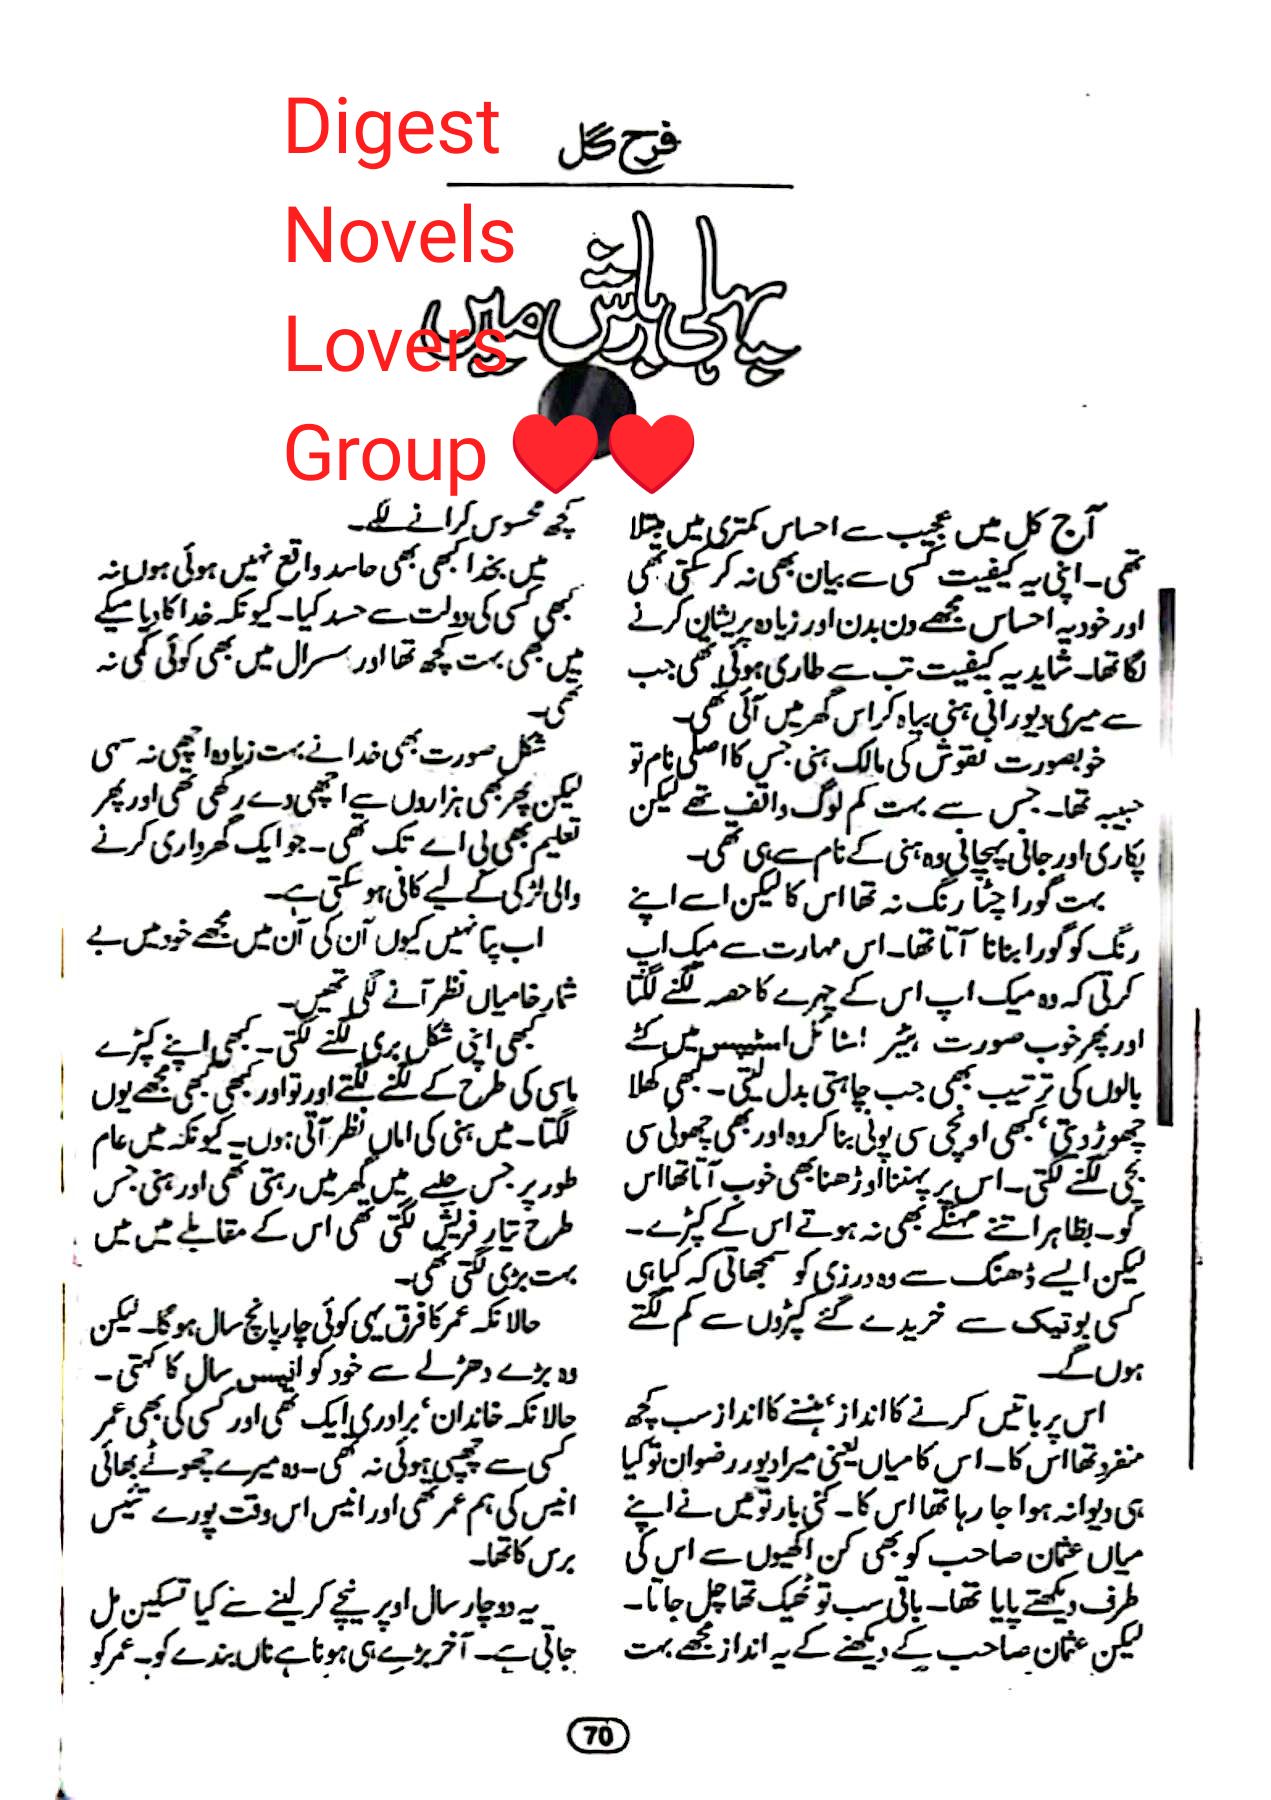 Digest
Novels
Lovers
Group ❤❤
فرح گل
پہلی بارش میں
آج کل میں عجیب سے احساس کمتری میں مبتلا
تھی۔ اپنی یہ کیفیت کسی سے بیان بھی نہ کر سکتی تھی
اور خود یہ احساس مجھے دن بدن اور زیادہ پریشان کرنے
لگا تھا۔ شاید یہ کیفیت تب سے طاری ہوئی تھی جب
سے میری دیورانی ہنی بیاہ کر اس گھر میں آئی تھی۔
خوبصورت نقوش کی مالک ہنی جس کا اصلی نام تو
حبیبہ تھا۔ جس سے بہت کم لوگ واقف تھے لیکن
پکاری اور جانی پہچانی وہ ہنی کے نام سے ہی تھی۔
بہت گورا چٹا رنگ نہ تھا اس کا لیکن اسے اپنے
رنگ کو گورا بنانا آتا تھا۔ اس مہارت سے میک اپ
کرتی کہ وہ میک اپ اس کے چہرے کا حصہ لگنے لگتا
اور پھر خوب صورت ہیئر اسٹائل اسٹیپس میں کٹے
بالوں کی ترتیب بھی جب چاہتی بدل لیتی۔ کبھی کھلا
چھوڑ دیتی، کبھی اونچی سی پونی بنا کر وہ اور بھی چھوٹی سی
بچی لگنے لگتی۔ اس پر پہننا اوڑھنا بھی خوب آتا تھا اس
کو۔ بظاہر اتنے مہنگے بھی نہ ہوتے اس کے کپڑے۔
لیکن ایسے ڈھنگ سے وہ درزی کو سمجھاتی کہ کیا ہی
کسی بوتیک سے خریدے گئے کپڑوں سے کم لگتے
ہوں گے۔
اس پر باتیں کرنے کا انداز، ہنسنے کا انداز سب کچھ
منفرد تھا اس کا۔ اس کا میاں یعنی میرا دیور رضوان تو کیا
ہی دیوانہ ہوا جا رہا تھا اس کا۔ کئی بار تو میں نے اپنے
میاں عثمان صاحب کو بھی کن اکھیوں سے اس کی
طرف دیکھتے پایا تھا۔ باقی سب تو ٹھیک تھا چل جاتا۔
لیکن عثمان صاحب کے دیکھنے کے یہ انداز مجھے بہت
کچھ محسوس کرانے لگے۔
میں بخدا کبھی بھی حاسد واقع نہیں ہوئی ہوں نہ
کبھی کسی کی دولت سے حسد کیا۔ کیونکہ خدا کا دیا میکے
میں بھی بہت کچھ تھا اور سسرال میں بھی کوئی کمی نہ
تھی۔
شکل صورت بھی خدا نے بہت زیادہ اچھی نہ سہی
لیکن پھر بھی ہزاروں سے اچھی دے رکھی تھی اور پھر
تعلیم بھی بی اے تک تھی۔ جو ایک گھرداری کرنے
والی لڑکی کے لیے کافی ہو سکتی ہے۔
اب پتا نہیں کیوں آن کی آن میں مجھے خود میں بے
شمار خامیاں نظر آنے لگی تھیں۔
کبھی اپنی شکل بری لگنے لگتی۔ کبھی اپنے کپڑے
ماسی کی طرح کے لگنے لگتے اور تو اور کبھی کبھی مجھے یوں
لگتا۔ میں ہنی کی اماں نظر آتی ہوں۔ کیونکہ میں عام
طور پر جس حلیے میں گھر میں رہتی تھی اور ہنی جس
طرح تیار فریش لگتی تھی اس کے مقابلے میں میں
بہت بڑی لگتی تھی۔
حالانکہ عمر کا فرق یہی کوئی چار پانچ سال ہو گا۔ لیکن
وہ بڑے دھڑلے سے خود کو انیس سال کا کہتی۔
حالانکہ خاندان، برادری ایک تھی اور کسی کی بھی عمر
کسی سے چھپی ہوئی نہ تھی۔ وہ میرے چھوٹے بھائی
انیس کی ہم عمر تھی اور انیس اس وقت پورے تئیس
برس کا تھا۔
یہ دو چار سال اوپر نیچے کر لینے سے کیا تسکین مل
جاتی ہے۔ آخر بڑے ہی ہونا ہے ناں بندے کو۔ عمر کو
70